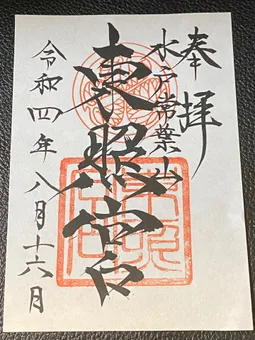 奉拝
水戸常葉山
東照宮
令和四年八月十六月